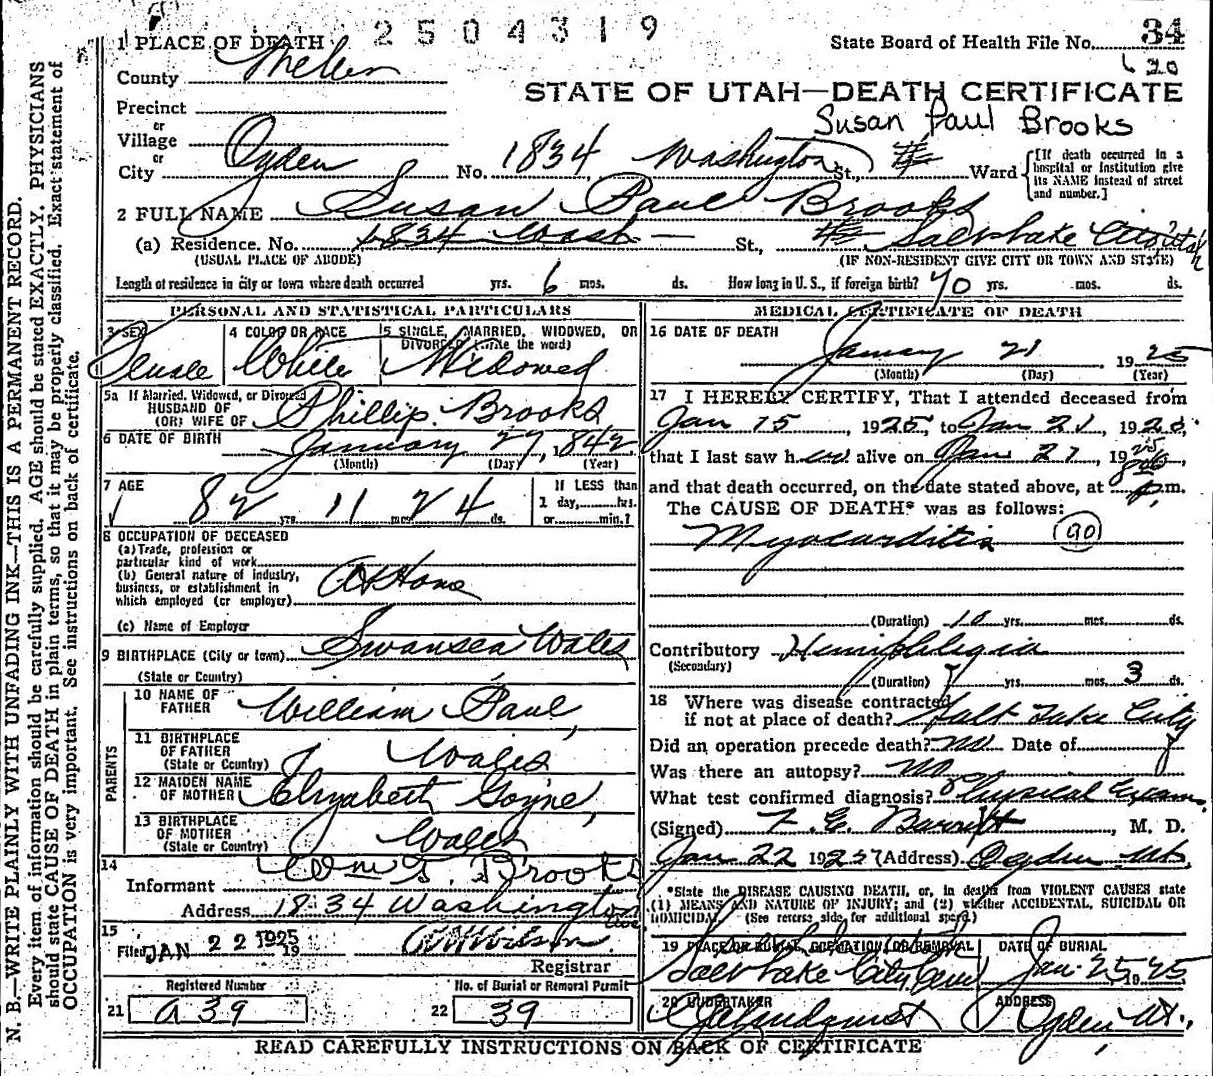 2504319
1 PLACE OF DEATH
State Board of Health File No. 34
County Weber
620
STATE OF UTAH—DEATH CERTIFICATE
Precinct
Susan Paul Brooks
or
Village
or
City Ogden No. 1834 Washington St., 4 Ward
[If death occurred in a hospital or institution give its NAME instead of street and number.]
2 FULL NAME Susan Paul Brooks
(a) Residence. No. 1834 Wash St., Salt Lake City Utah
(USUAL PLACE OF ABODE) (IF NON-RESIDENT GIVE CITY OR TOWN AND STATE)
Length of residence in city or town where death occurred yrs. 6 mos. ds. How long in U. S., if foreign birth? 70 yrs. mos. ds.
PERSONAL AND STATISTICAL PARTICULARS
3 SEX
Female
4 COLOR OR RACE
White
5 SINGLE, MARRIED, WIDOWED, OR DIVORCED (write the word)
Widowed
5a If Married, Widowed, or Divorced
HUSBAND OF
(OR) WIFE OF Phillip Brooks
6 DATE OF BIRTH January 27, 1842
(Month) (Day) (Year)
7 AGE
82 yrs. 11 mos. 24 ds.
If LESS than
1 day,......hrs.
or......min.?
8 OCCUPATION OF DECEASED
(a) Trade, profession or
particular kind of work
(b) General nature of industry,
business, or establishment in
which employed (or employer) At Home
(c) Name of Employer
9 BIRTHPLACE (City or town) Swansea Wales
(State or Country)
PARENTS
10 NAME OF
FATHER William Paul
11 BIRTHPLACE
OF FATHER Wales
(State or Country)
12 MAIDEN NAME
OF MOTHER Elizabeth Goyne
13 BIRTHPLACE
OF MOTHER Wales
(State or Country)
14
Informant Wm G. Brooks
Address 1834 Washington Ave.
15
Filed JAN 22 1925 19
Registrar
Registered Number
21 a 39
No. of Burial or Removal Permit
22 39
MEDICAL CERTIFICATE OF DEATH
16 DATE OF DEATH
January 21 1925
(Month) (Day) (Year)
17 I HEREBY CERTIFY, That I attended deceased from
Jan 15, 1925, to Jan 21, 1925,
that I last saw her alive on Jan 21, 1925,
and that death occurred, on the date stated above, at 8 p.m.
The CAUSE OF DEATH* was as follows:
Myocarditis (90)
(Duration) 10 yrs. mos. ds.
Contributory Hemiphlegia
(Secondary)
(Duration) yrs. mos. 3 ds.
18 Where was disease contracted
if not at place of death? Salt Lake City
Did an operation precede death? no Date of
Was there an autopsy? no
What test confirmed diagnosis? Physical Exam.
(Signed) F. C. Barrett, M. D.
Jan 22 1925 (Address) Ogden Ut.
*State the DISEASE CAUSING DEATH, or, in deaths from VIOLENT CAUSES state
(1) MEANS AND NATURE OF INJURY; and (2) whether ACCIDENTAL, SUICIDAL OR
HOMICIDAL. (See reverse side for additional space.)
19 PLACE OF BURIAL, CREMATION, OR REMOVAL
Salt Lake City Cem
DATE OF BURIAL
Jan. 25, 1925
20 UNDERTAKER
Lindquist
ADDRESS
Ogden, Ut.,
READ CAREFULLY INSTRUCTIONS ON BACK OF CERTIFICATE
N. B.—WRITE PLAINLY WITH UNFADING INK—THIS IS A PERMANENT RECORD.
Every item of information should be carefully supplied. AGE should be stated EXACTLY. PHYSICIANS
should state CAUSE OF DEATH in plain terms, so that it may be properly classified. Exact statement of
OCCUPATION is very important. See instructions on back of certificate.